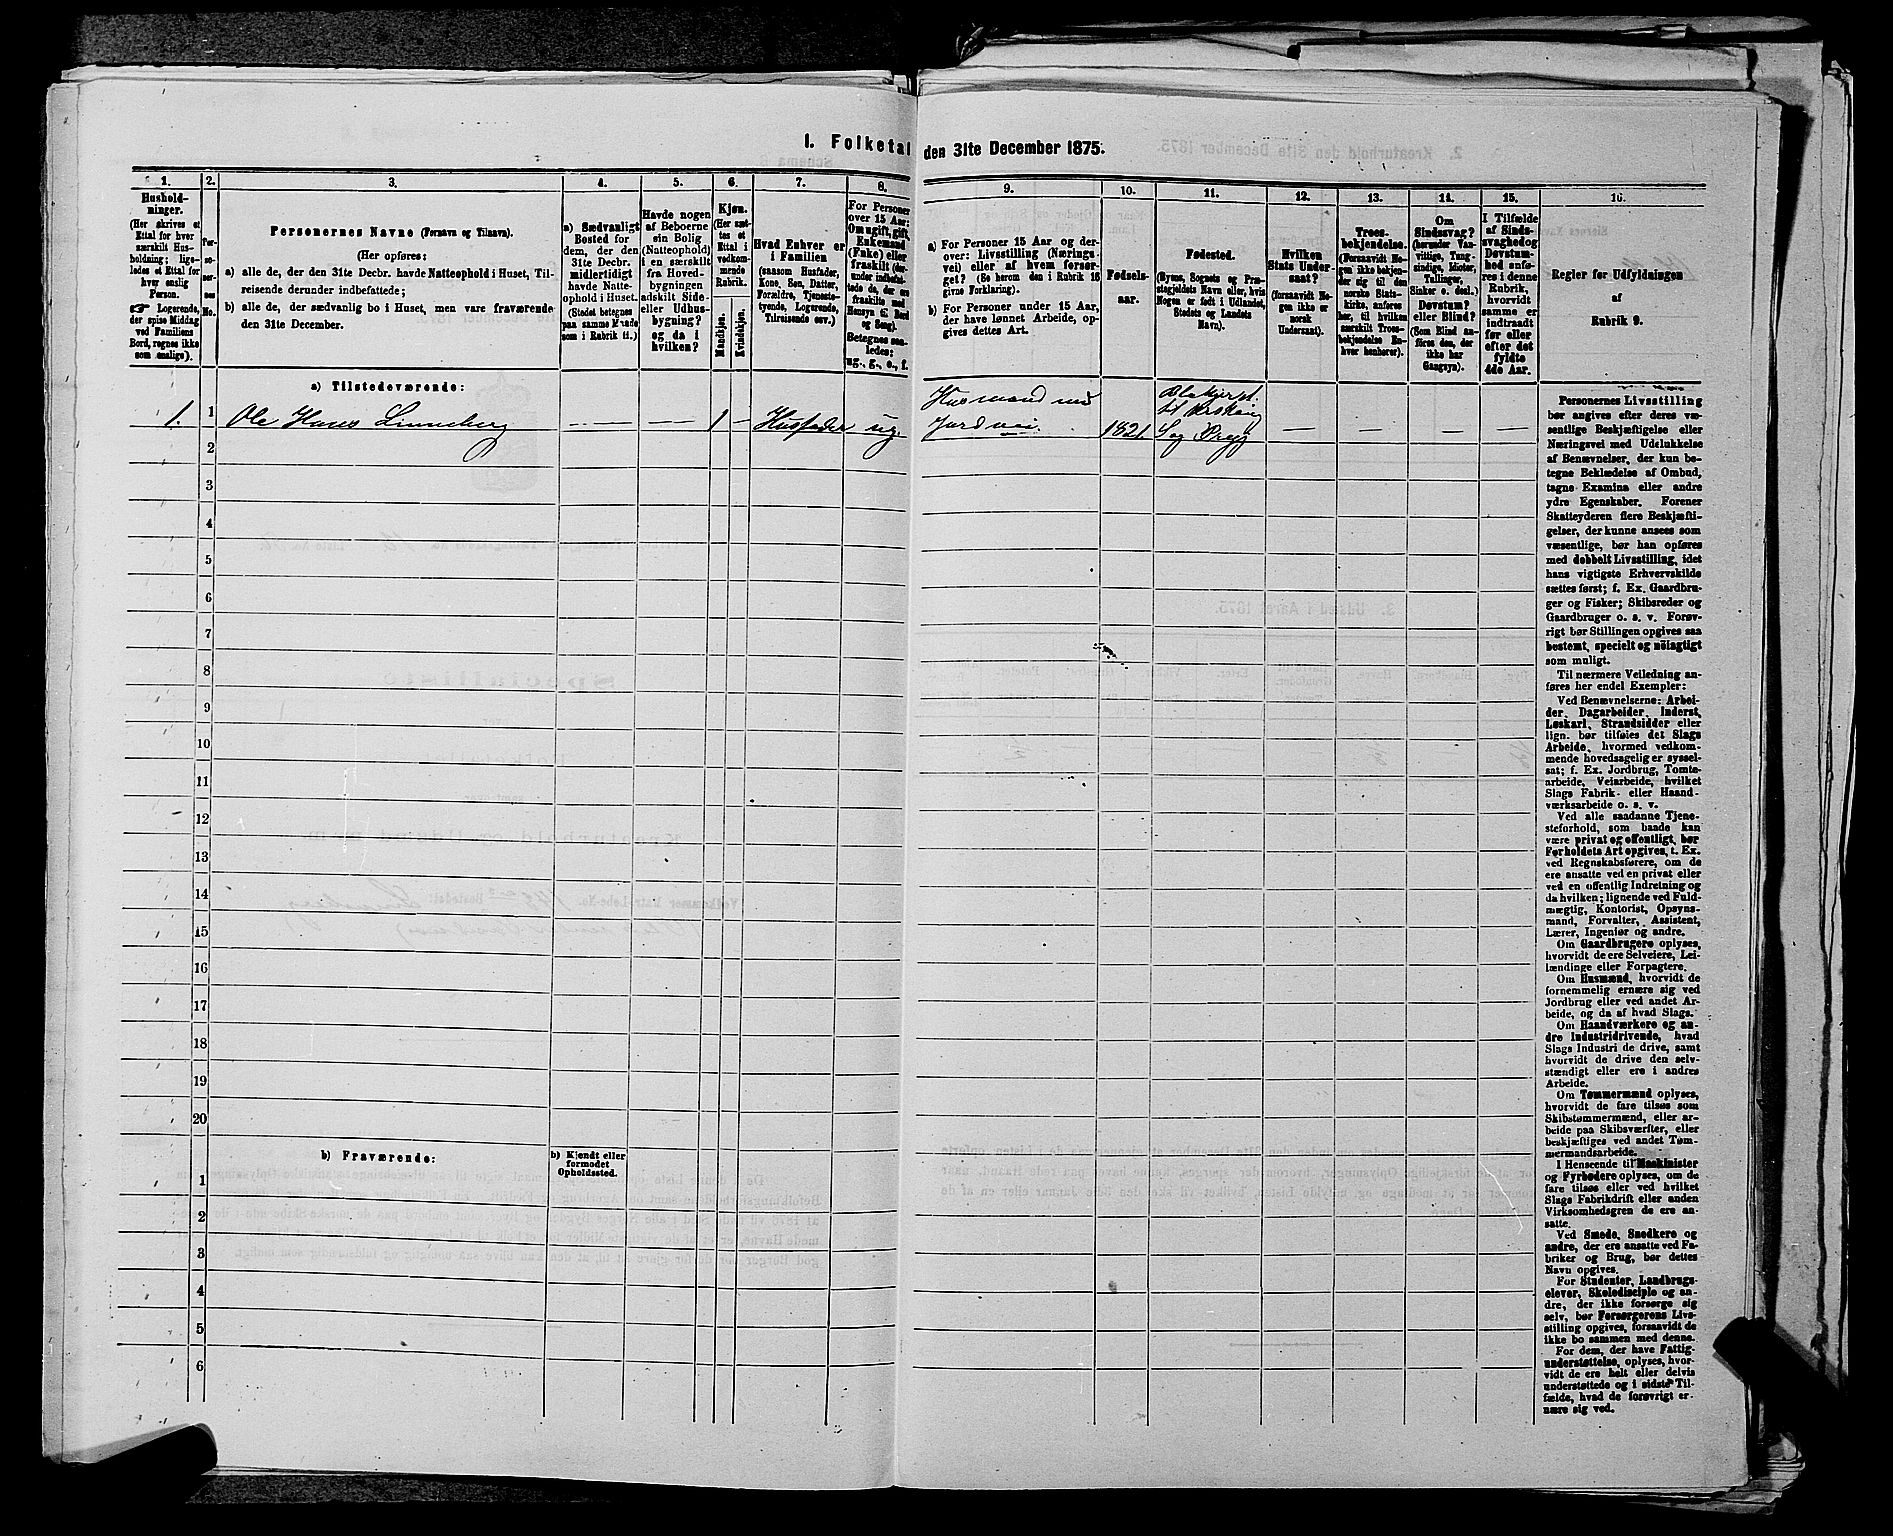 I. Folketal den 31te December 1875.
1. 2. 3. 4. 5. 6. 7. 8. 9. 10. 11. 12. 13. 14. 15. 16.
Hushold-
ninger.
(Her skrives et
Ettal for hver
særskilt Hus-
holdning; lige-
ledes et Ettal for
hver enslig
Person.
☞ Logerende,
der spise Middag
ved Familiens
Bord, regnes ikke
som enslige).
Per-
so-
ner-
nes
No.
Personernes Navne (Fornavn og Tilnavn).
(Her opføres:
a) alle de, der den 31te Decbr. havde Natteophold i Huset, Til-
reisende derunder indbefattede;
b) alle de, der sædvanlig bo i Huset, men vare fraværende
den 31te December.
a) Sædvanligt
Bosted for
dem, der den
31te Decbr.
midlertidigt
havde Natte-
ophold i Huset.
(Stedet betegnes
paa samme Maade
som i Rubrik 11.)
Havde nogen
af Beboerne
sin Bolig
(Natteophold)
i en særskilt
fra Hoved-
bygningen
adskilt Side-
eller Udhus-
bygning?
og da i
hvilken?
Kjøn.
(Her sæt-
tes et
Ettal i
vedkom-
mende
Rubrik.
Mandkjøn.
Kvindekjøn.
Hvad Enhver er
i Familien
(saasom Husfader,
Kone, Søn, Datter,
Forældre, Tjeneste-
tyende, Logerende,
Tilreisende osv.)
For Personer
over 15 Aar:
Om ugift, gift,
Enkemand
(Enke) eller
fraskilt (der-
under indbefat-
tede de, der ere
fraskilte med
Hensyn til Bord
og Seng).
Betegnes saa-
ledes:
ug., g., e., f.
a) For Personer 15 Aar og der-
over: Livsstilling (Nærings-
vei) eller af hvem forsør-
get? (Se herom den i Rubrik 16
givne Forklaring).
b) For Personer under 15 Aar,
der have lønnet Arbeide, op-
gives dettes Art.
Fødsels-
aar.
Fødested.
(Byens, Sognets og Præ-
stegjeldets Navn eller, hvis
Nogen er født i Udlandet,
Stedets og Landets
Navn).
Hvilken
Stats Under-
saat?
(forsaavidt No-
gen ikke er
norsk
Undersaat).
Troes-
bekjendelse.
(Forsaavidt No-
gen ikke bekjen-
der sig til den
norske Stats-
kirke, anføres
her, til hvilken
særskilt Troes-
bekjendelse En-
hver henhører).
Om
Sindssvag?
(herunder Van-
vittige, Tung-
sindige, Idioter,
Tullinger,
Sinker o. desl.)
Døvstum?
eller Blind?
(Som Blind an-
føres den, der
ikke har
Gangsyn).
I Tilfælde
af Sinds-
svaghed og
Døvstum-
hed anfø-
res i denne
Rubrik,
hvorvidt
samme er
indtraadt
før eller
efter det
fyldte
4de Aar.
Regler før Udfyldningen
af
Rubrik 9.
a) Tilstedeværende:
1. 1 Ole Hans Linneberg — — 1 – Husfader ug. Husmand med Jord 1821. — — — —
2
3
4
5
6
7
8
9
10
11
12
13
14
15
16
17
18
19
20
b) Fraværende:
b) Kjendt eller
formodet
Opholdssted.
1
2
3
4
5
6
Personernes Livsstilling
bør angives efter deres væ-
sentlige Beskjæftigelse eller
Næringsvei med Udelukkelse
af Benævnelser, der kun be-
tegne Beklædelse af Ombud,
tagne Examina eller andre
ydre Egenskaber. Forener
Skatteyderen flere Beskjæfti-
gelser, der kunne ansees som
væsentlige, bør han opføres
med dobbelt Livsstilling, idet
hans vigtigste Erhvervskilde
sættes først; f. Ex. Gaardbru-
ger og Fisker; Skibsreder og
Gaardbruger o. s. v. Forøv-
rigt bør Stillingen opgives saa
bestemt, specielt og nöiagtigt
som muligt.
Til nærmere Veiledning an-
føres her endel Exempler:
Ved Benævnelserne: Arbei-
der, Dagarbeider, Inderst,
Løskarl, Strandsidder eller
lign. bør tilføies det Slags
Arbeide, hvormed vedkom-
mende hovedsagelig er syssel-
sat; f. Ex. Jordbrug, Tomte-
arbeide, Veiarbeide, hvilket
Slags Fabrik- eller Haand-
værksarbeide o. s. v.
Ved alle saadanne Tjene-
steforhold, som baade kan
være privat og offentligt, bør
Forholdets Art opgives, t. Ex.
ved Regnskabsførere, om de
ere ansatte ved en privat eller
ved en offentlig Indretning og
da hvilken; lignende ved Fuld-
mægtig, Kontorist, Opsyns-
mand, Forvalter, Assistent,
Lærer, Ingeniør og andre.
Om Gaardbrugere oplyses,
hvorvidt de ere Selveiere, Lei-
lændinge eller Forpagtere.
Om Husmænd, hvorvidt de
fornemmelig ernære sig ved
Jordbrug eller ved andet Ar-
beide, og da af hvad Slags.
Om Haandværkere og an-
dre Industridrivende, hvad
Slags Industri de drive, samt
hvorvidt de drive den selv-
stændigt eller ere i andres
Arbeide.
Om Tømmermænd oplyses,
hvorvidt de fare tilsøs som
Skibstømmermænd, eller ar-
beide paa Skibsværfter, eller
beskjæftiges ved andet Tøm-
mermandsarbeide.
I Henseende til Maskinister
og Fyrbødere oplyses, om de
fare tilsøs eller ved hvilket
Slags Fabrikdrift eller anden
Virksomhedsgren de ere an-
satte.
Ved Smede, Snedkere og
andre, der ere ansatte ved Fa-
briker og Brug, bør dettes
Navn opgives.
For Studenter, Landbrugs-
elever, Skoledisciple og an-
dre, der ikke forsørge sig
selv, bør Forsørgerens Livs-
stilling opgives, forsaavidt de
ikke bo sammen med denne.
For dem, der have Fattig-
understøttelse, oplyses, hvor-
vidt de ere helt eller delvis
understøttede og i sidste Til-
fælde, hvad de forøvrigt er-
nære sig ved.